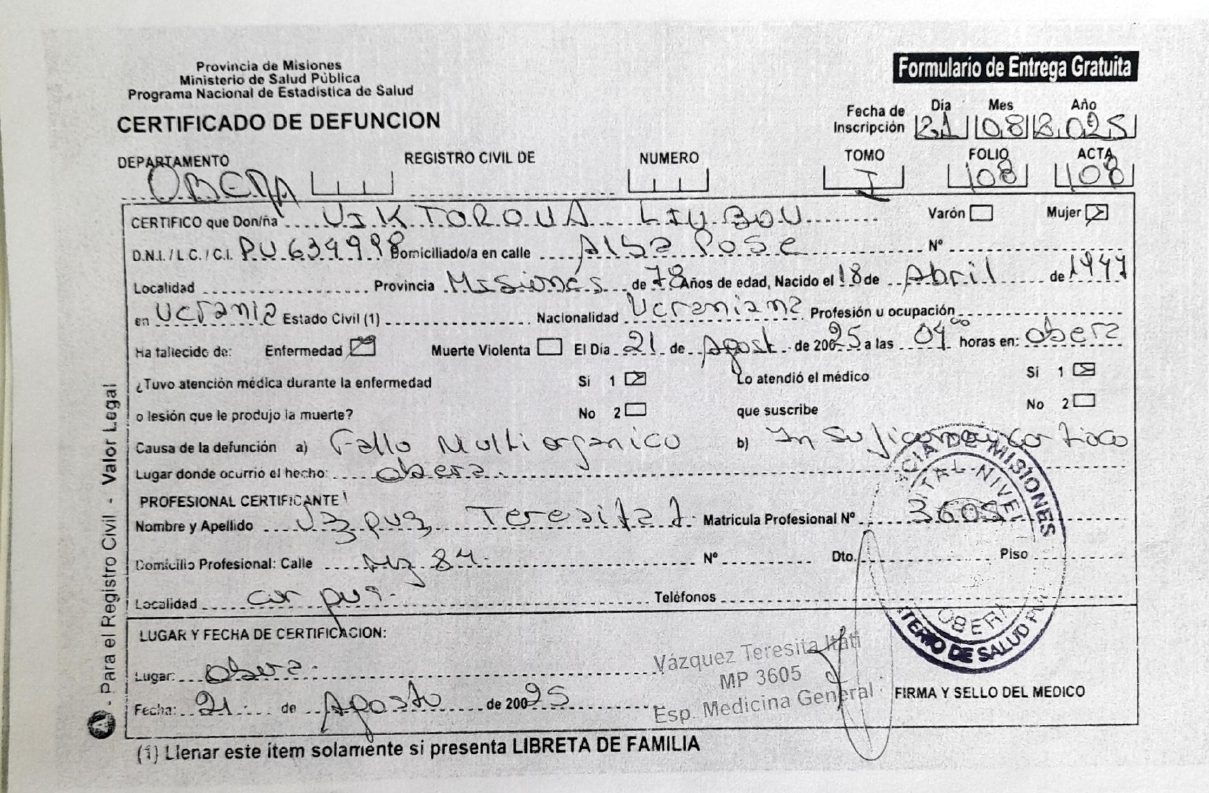 Provincia de Misiones
Ministerio de Salud Pública
Programa Nacional de Estadística de Salud
Formulario de Entrega Gratuita
CERTIFICADO DE DEFUNCION
Fecha de Inscripción Día 21 Mes 08 Año 2025
DEPARTAMENTO OBERA REGISTRO CIVIL DE NUMERO TOMO I FOLIO 108 ACTA 108
CERTIFICO que Don/ña VIKTOROVA LIUBOV Varón Mujer
D.N.I. / L C. / C.I. Domiciliado/a en calle Alba Pose Nº
Localidad Provincia Misiones de 78 Años de edad, Nacido el 18 de Abril de 1947
en Ucrania Estado Civil (1) Nacionalidad Ucraniana Profesión u ocupación
Ha fallecido de: Enfermedad Muerte Violenta El Día 21 de Agost de 200 25 a las 04 00 horas en: obera
¿Tuvo atención médica durante la enfermedad Si 1 Lo atendió el médico Si 1
o lesión que le produjo la muerte? No 2 que suscribe No 2
Causa de la defunción a) Fallo Multiorganico b)
Lugar donde ocurrió el hecho: obera.
PROFESIONAL CERTIFICANTE
Nombre y Apellido Vazquez, Teresita I. Matricula Profesional Nº 3605
Domicilio Profesional: Calle Mz 84. Nº Dto. Piso
Localidad corpus. Teléfonos
LUGAR Y FECHA DE CERTIFICACIÓN:
Lugar: obera.
Fecha: 21 de Agosto de 200 25
Vázquez Teresita Itatí
MP 3605
Esp. Medicina General
FIRMA Y SELLO DEL MEDICO
(1) Llenar este item solamente si presenta LIBRETA DE FAMILIA
- Para el Registro Civil - Valor Legal
CIA DE MISIONES
ITAL NIVEL
OBERA
TERIO DE SALUD